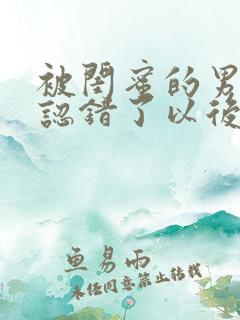 被閨蜜的男
認錯了以後
魚易雨
未經同意禁止轉載